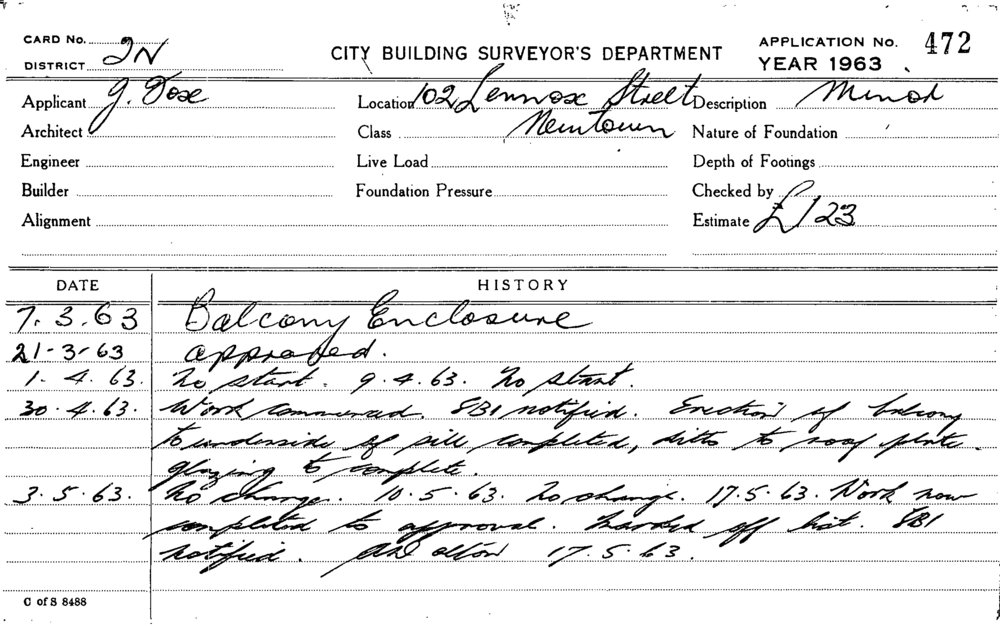 CARD No. 2N
DISTRICT
CITY BUILDING SURVEYOR'S DEPARTMENT
APPLICATION No. 472
YEAR 1963
Applicant J. Dose Location 102 Lennox Street Description Minor
Architect Class Newtown Nature of Foundation
Engineer Live Load Depth of Footings
Builder Foundation Pressure Checked by
Alignment Estimate £123
DATE HISTORY
7.3.63 Balcony Enclosure
21-3-63 approved.
1.4.63. No start. 9.4.63. No start.
30.4.63. Work commenced. SBI notified. Erection of balcony
to underside of sill completed, ditto to roof plate.
glazing to complete.
3.5.63. No change. 10.5.63. No change. 17.5.63. Work now
completed to approval. Marked off list. SBI
notified. 17.5.63.
C of S 8488